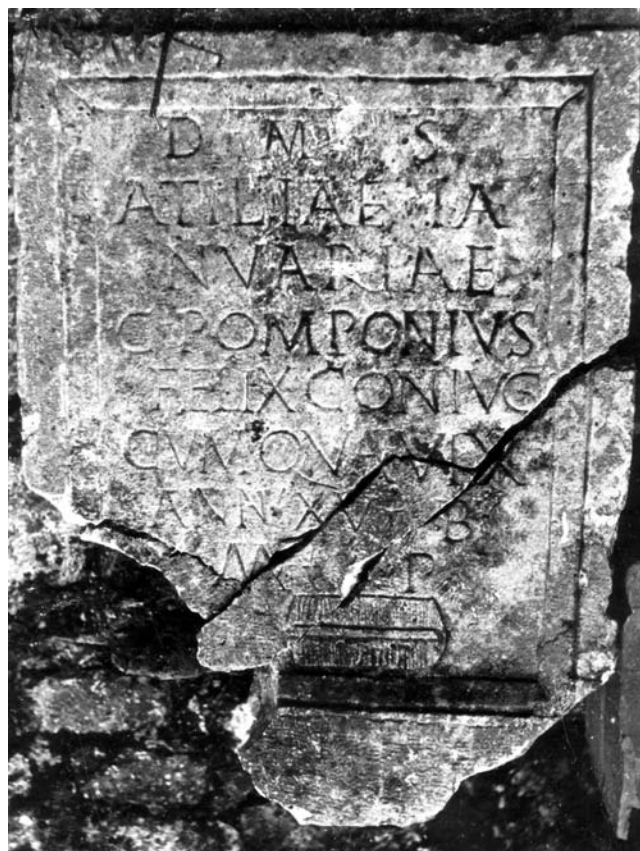 D M S
ATILIAE IA
NVARIAE
C POMPONIVS
FELIX CONIVG
CVM QVA VIX
ANN XV B
M P